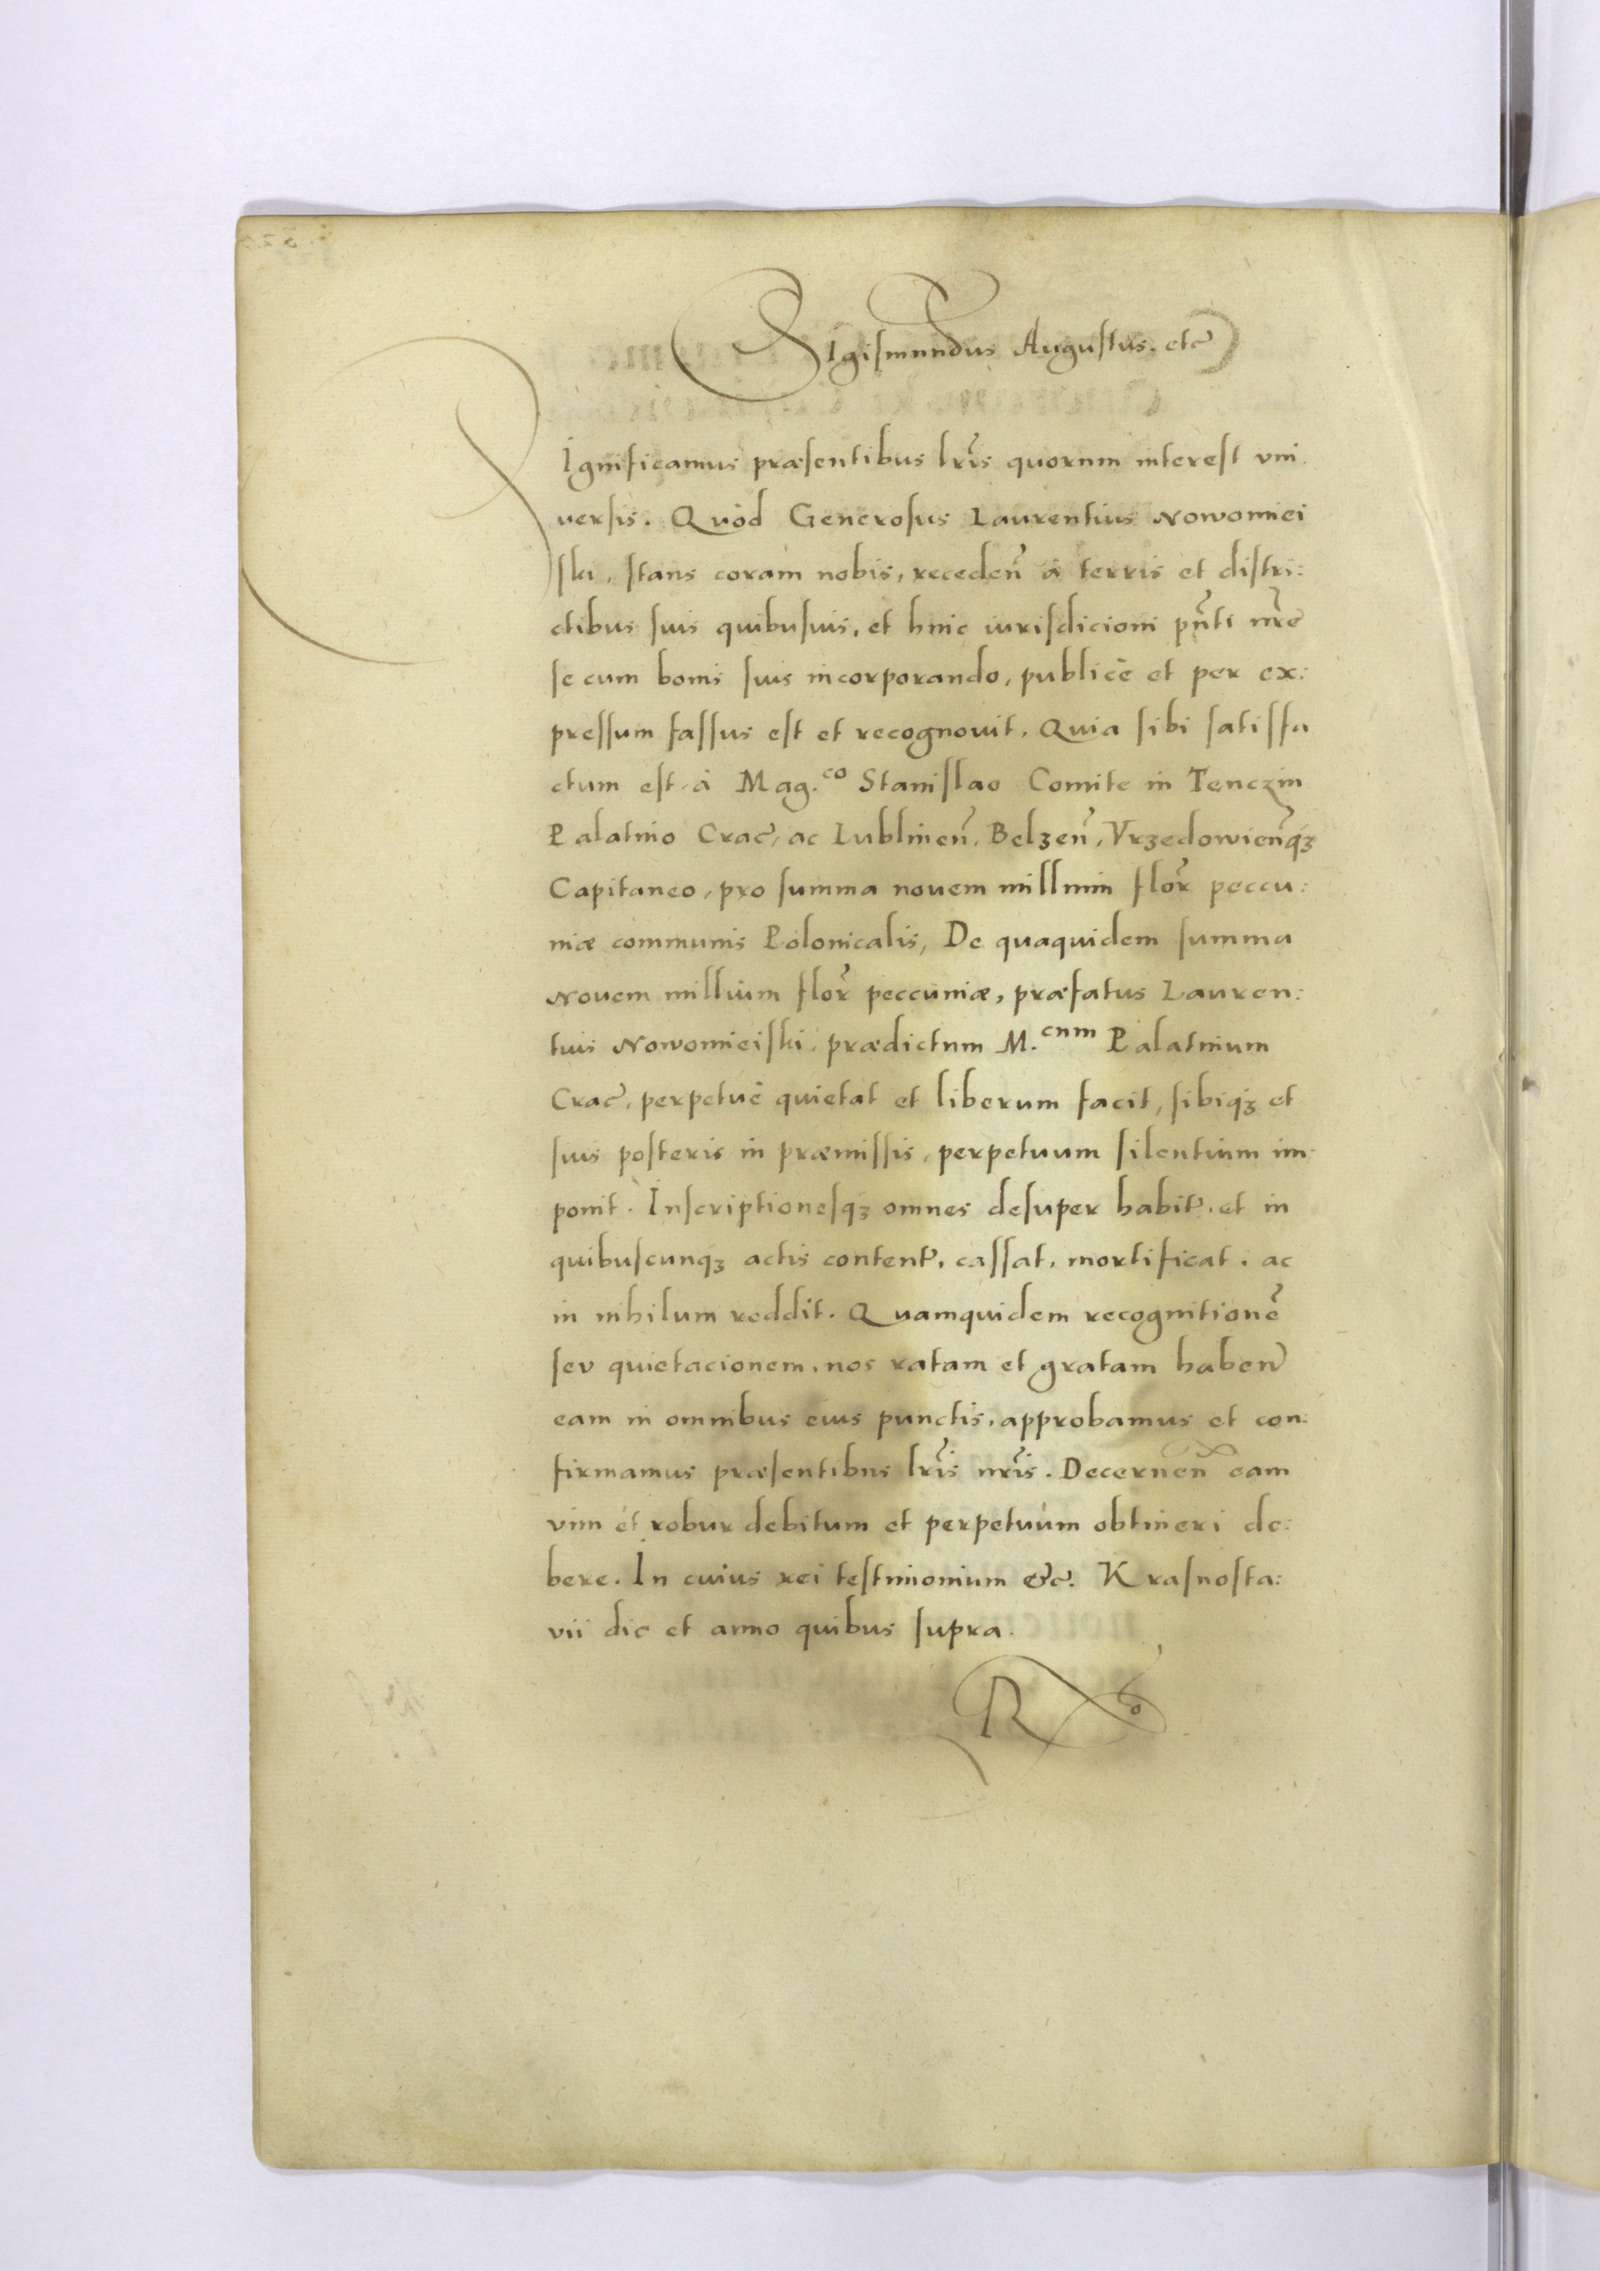 Sigismundus Augustus. etc̃
Significamus præsentibus lr̃is quorum interest vni
uersis. Quòd Generosus Laurentius Nowomiei
ski, stans coram nobis, recedeñ à terris et distri:
ctibus suis quibusuis, et huic iurisdicioni pñti nr̃e
se cum bonis suis incorporando, publicè et per ex:
pressum fassus est et recognouit. Quia sibi satisfa
ctum est à Mag.co Stanislao Comite in Tenczin
Palatino Crac̃, ac Lublineñ, Belzeñ, Vrzedowieñqꝫ
Capitaneo, pro summa nouem millium flor̃ peccu:
niæ communis Polonicalis, De quaquidem summa
Nouem millium flor̃ peccuniæ, præfatus Lauren:
tius Nowomieiski, prædictum M.cum Palatinum
Crac̃, perpetuè quietat et liberum facit, sibiqꝫ et
suis posteris in præmissis, perpetuum silentium im
ponit. Inscriptionesqꝫ omnes desuper habit̃, et in
quibuscunqꝫ actis content̃, cassat, mortificat, ac
in nihilum reddit. Quamquidem recognitionẽ
seu quietacionem, nos ratam et gratam habeñ
eam in omnibus eius punctis, approbamus et con:
firmamus præsentibus lr̃is nr̃is. Decerneñ eam
vim et robur debitum et perpetuum obtineri de:
bere. In cuius rei testimonium &c̃. Krasnosta:
vii die et anno quibus supra.
R